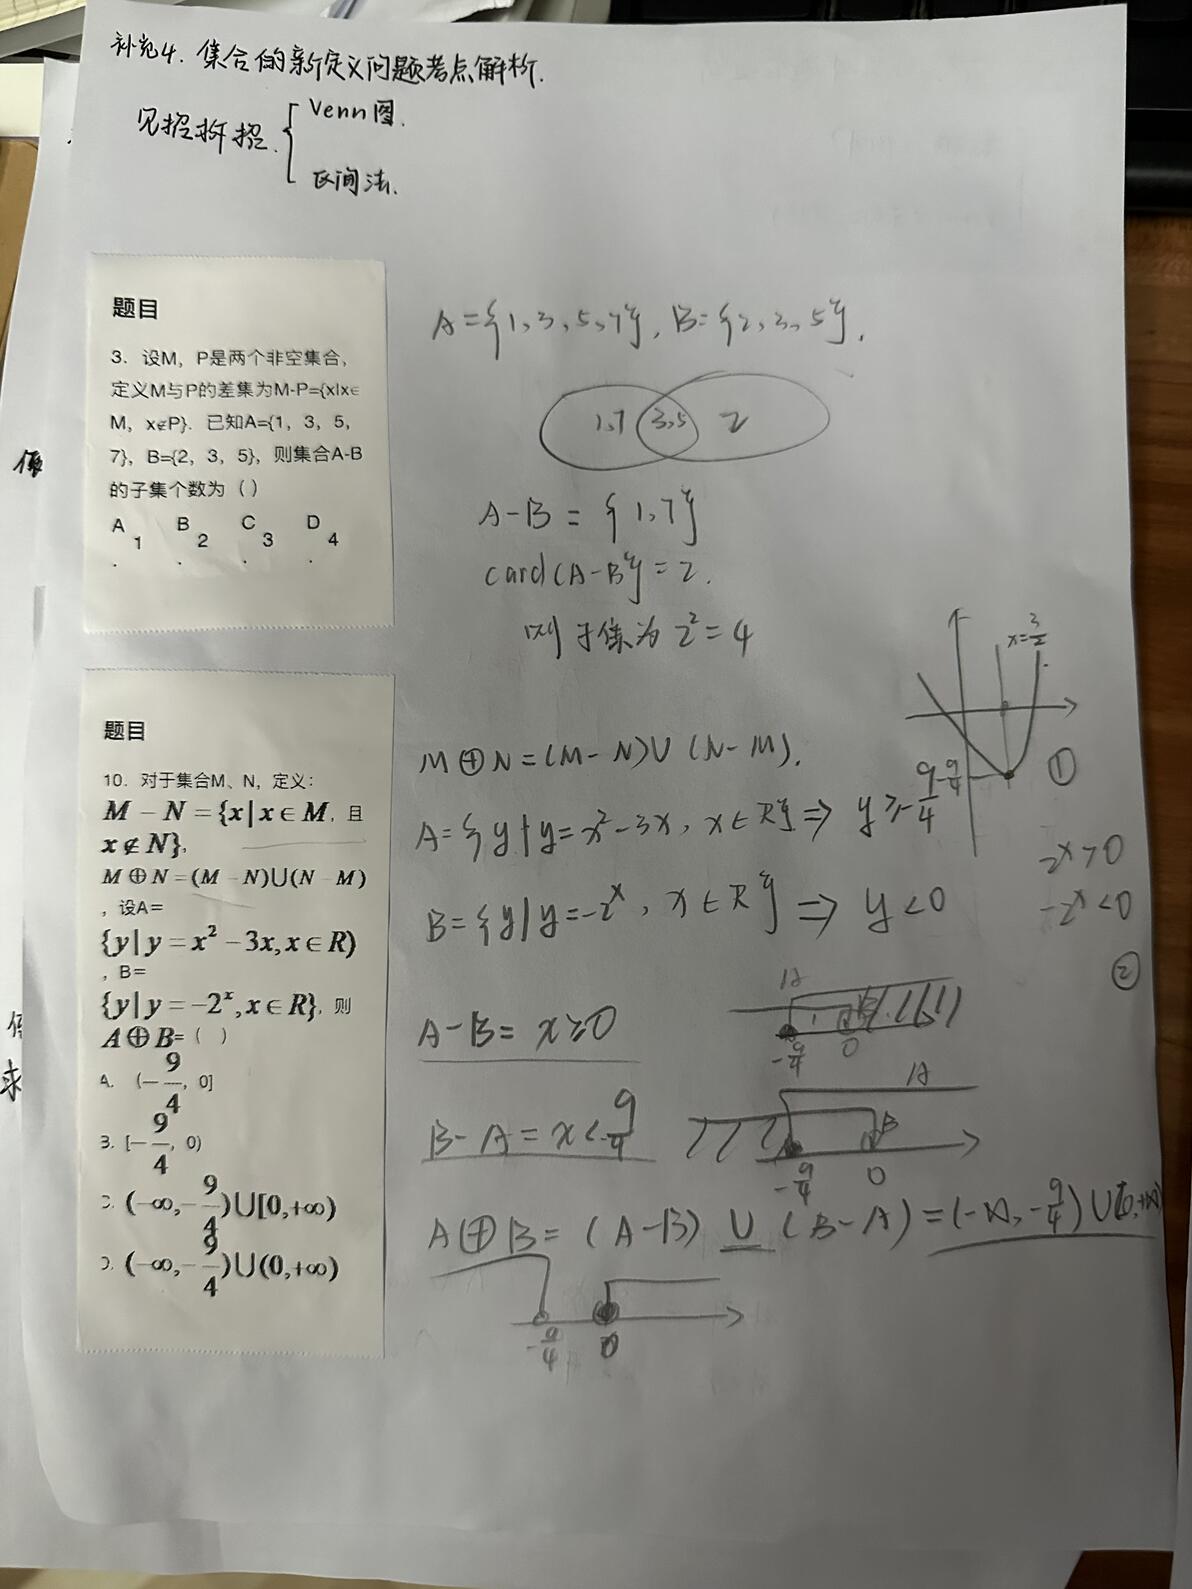 补充4. 集合的新定义问题考点解析.
见招拆招.
Venn图.
区间法.
题目
3. 设M, P是两个非空集合,
定义M与P的差集为M-P={x|x∈
M, x∉P}. 已知A={1, 3, 5,
7}, B={2, 3, 5}, 则集合A-B
的子集个数为 ( )
A 1 . B 2 . C 3 . D 4 .
A={1,3,5,7}, B={2,3,5}.
1,7 3,5 2
A-B = {1,7}
card(A-B} = 2.
则子集为 2²=4
题目
10. 对于集合M、N, 定义:
M - N = {x | x ∈ M, 且
x ∉ N},
M ⊕ N = (M - N)∪(N - M)
, 设A=
{y | y = x² - 3x, x ∈ R)
, B=
{y | y = -2ˣ, x ∈ R}, 则
A ⊕ B= ( )
A. (-9/4, 0]
B. [-9/4, 0)
C. (-∞, -9/4)∪[0, +∞)
D. (-∞, -9/4)∪(0, +∞)
x=3/2
-9/4
①
M⊕N=(M-N)∪(N-M).
A={y|y=x²-3x, x∈R} ⇒ y≥-9/4
2ˣ>0
B={y|y=-2ˣ, x∈R} ⇒ y<0
-2ˣ<0
②
A
B
A-B = x≥0
-9/4 0
A
B
B-A = x<-9/4
-9/4 0
A⊕B = (A-B) ∪ (B-A) = (-∞, -9/4)∪[0,+∞)
-9/4 0